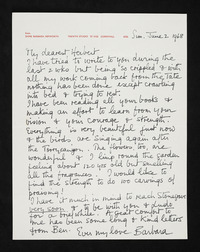 Sun. June 2. 1968
My dearest Herbert
I have tried to write to you during the
last 2 wks but being so crippled & with
all my work coming back from the Tate
nothing has been done except crawling
into bed & trying to rest.
I have been reading all your books &
making an effort to learn from your
vision & your courage & strength.
Everything is very beautiful just now
& the birds are singing again after
the Torrey Canyon. The flowers too, are
wonderful & I limp round the garden
feeling about 120 yrs old but smelling
all the fragrances. I would like to
find the strength to do 100 carvings of
praising!
I have it much in mind to reach Stonegrave
very soon & to be with you & Ludo
for a precious while. A great comfort to
me has been some long & kind letters
from Ben. Ever my love Barbara